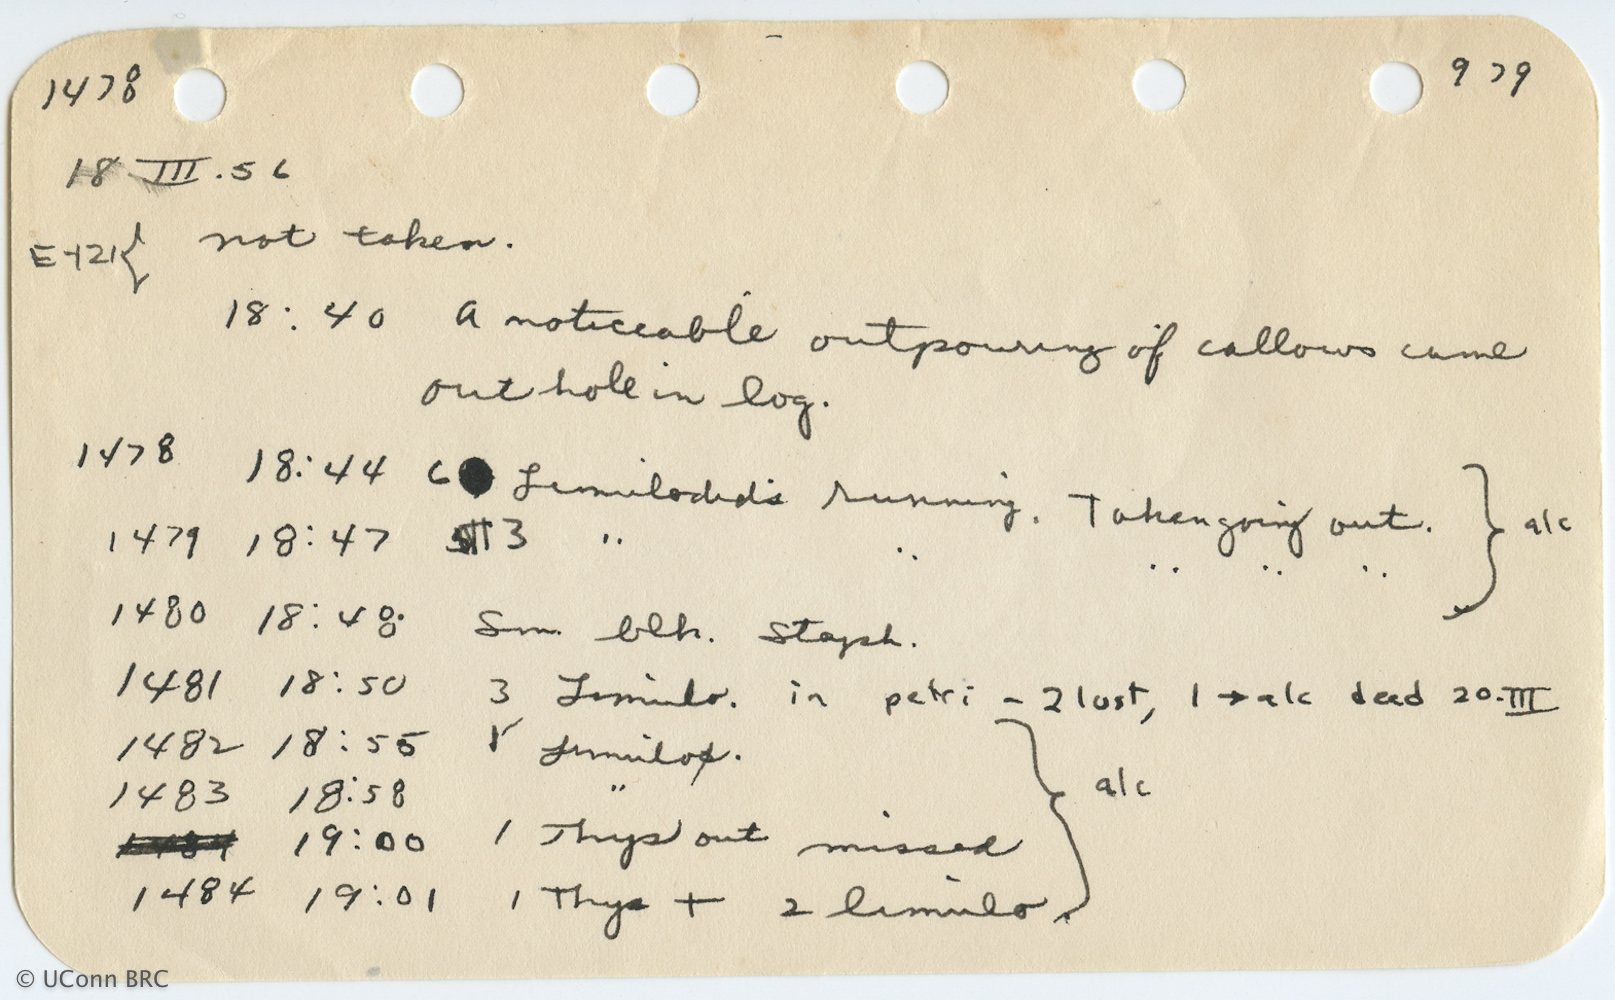 1478 979
18.III.56
E-121{ not taken.
18:40 A noticeable outpouring of callows came
out hole in log.
1478 18:44 6 Limulodids running. Taken going out. } alc
1479 18:47 3 " " " " "
1480 18:48 Sm. blk. Staph.
1481 18:50 3 Limulo. in petri - 2 lost, 1 → alc dead 20-III
1482 18:55 Limulo. } alc
1483 18:58 "
19:00 1 Thys out missed
1484 19:01 1 Thys + 2 limulo.
© UConn BRC